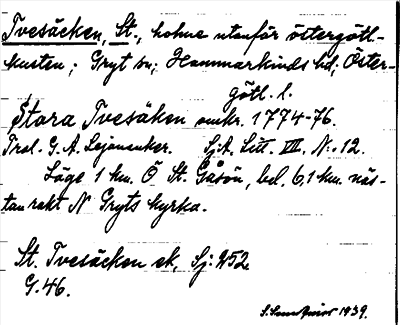 Tvesäcken, St., holme utanför östergötl-
kusten; Gryt sn; Hammarkinds hd; Öster-
götl. l.
Stora Tvesäken omkr. 1774-76.
Trol. G. A. Lejonanker. SjA. Litt. VIII. N:o 12.
Läge 1 km. Ö St. Gåsön, bel. 6,1 km. näs-
tan rakt N Gryts kyrka.
St. Tvesäcken ek. Sj: 252
G. 46.
1939.